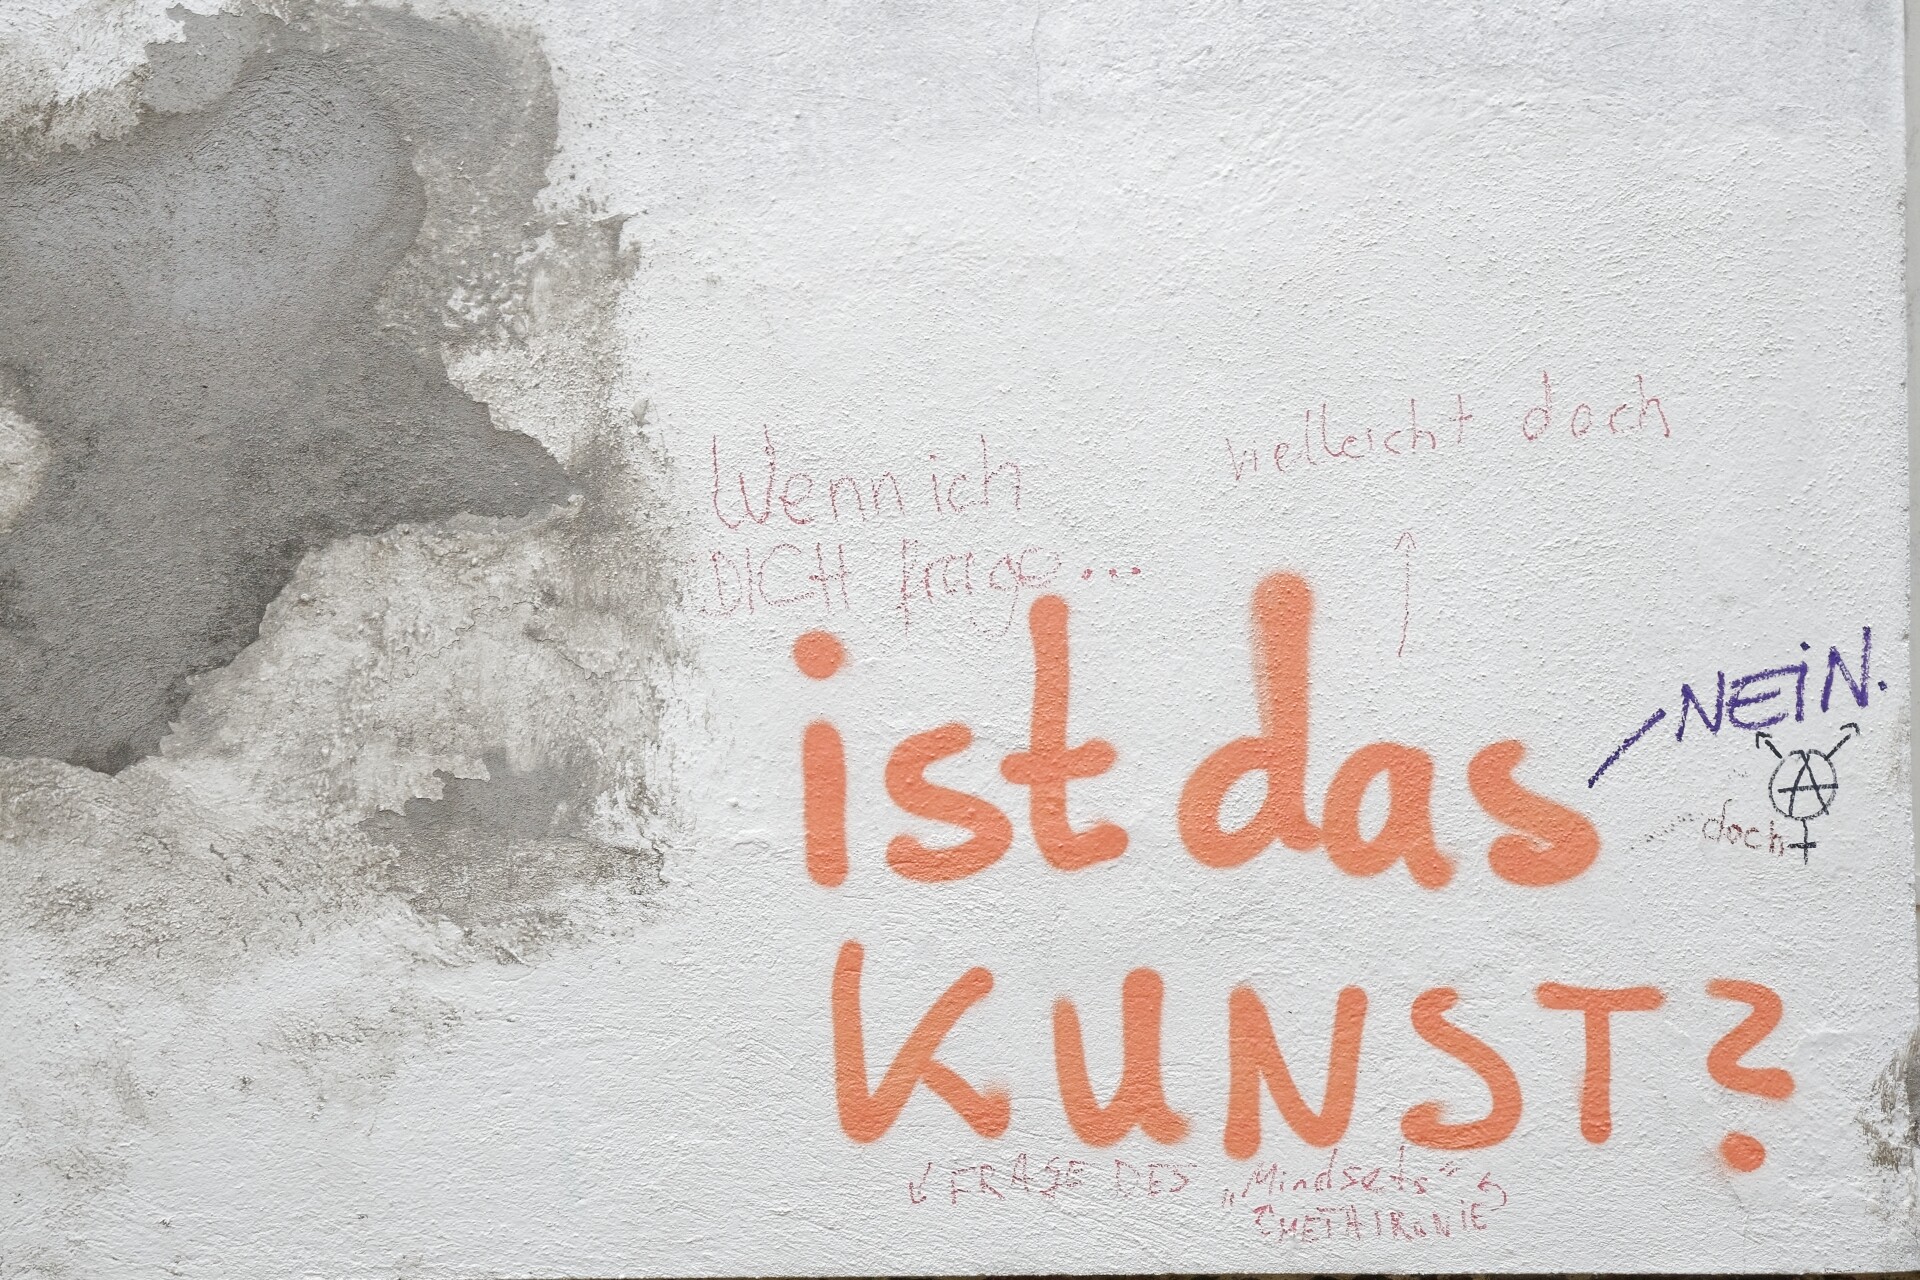 Wenn ich
DICH frage...
vielleicht doch
ist das
NEiN.
doch
KUNST?
FRAGE DES „Mindsets“